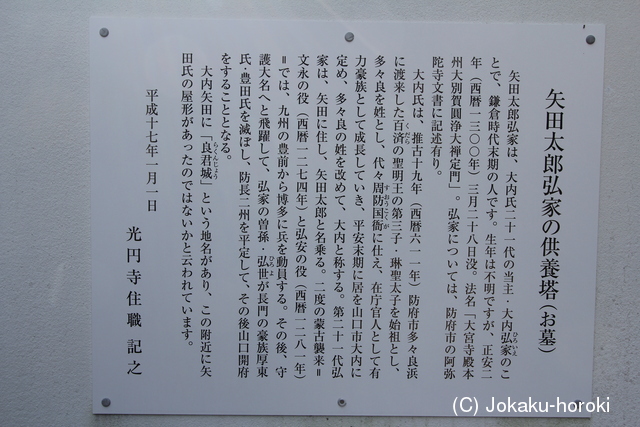 矢田太郎弘家の供養塔(お墓)
矢田太郎弘家は、大内氏二十一代の当主・大内弘家のこ
ひろいえ
とで、鎌倉時代末期の人です。生年は不明ですが、正安二
年(西暦一三〇〇年)三月二十八日没。法名「大宮寺殿本
州大別賀圓浄大禅定門」。弘家については、防府市の阿弥
陀寺文書に記述有り。
大内氏は、推古十九年(西暦六一一年)防府市多々良浜
に渡来した百済の聖明王の第三子・琳聖太子を始祖とし、
くだら
多々良を姓とし、代々周防国衙に仕え、在庁官人として有
すおうこくが
力豪族として成長していき、平安末期に居を山口市大内に
定め、多々良の姓を改めて、大内と称する。第二十一代弘
家は、矢田に住し、矢田太郎と名乗る。二度の蒙古襲来=
文永の役(西暦一二七四年)と弘安の役(西暦一二八一年)
=では、九州の豊前から博多に兵を動員する。その後、守
護大名へと飛躍して、弘家の曽孫・弘世が長門の豪族厚東
ひろよ
氏・豊田氏を滅ぼし、防長二州を平定して、その後山口開府
をすることとなる。
大内矢田に「良君城」という地名があり、この附近に矢
らくんじょう
田氏の屋形があったのではないかと云われています。
平成十七年一月一日
光円寺住職 記之
(C) Jokaku-horoki